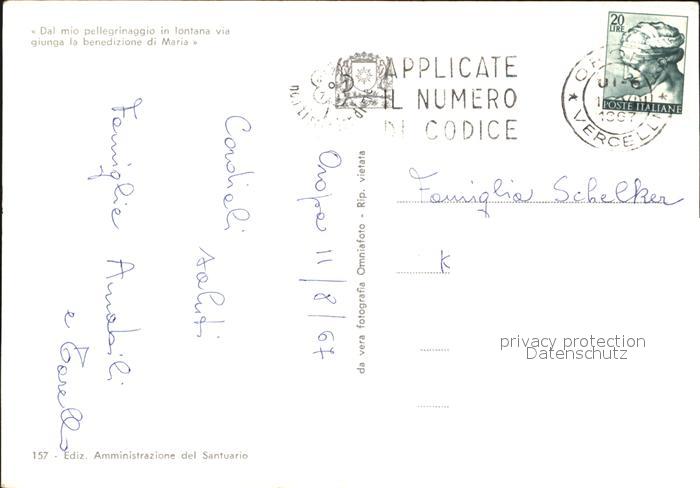 « Dal mio pellegrinaggio in lontana via
giunga la benedizione di Maria »
20
LIRE
POSTE ITALIANE
VERCELLI
APPLICATE
IL NUMERO
DI CODICE
Oropa 11/8/67
Cordiali
saluti
Famiglie Amabili
e Borello
da vera fotografia Omniafoto - Rip. vietata
Famiglia Schelker
K
privacy protection
Datenschutz
157 - Ediz. Amministrazione del Santuario